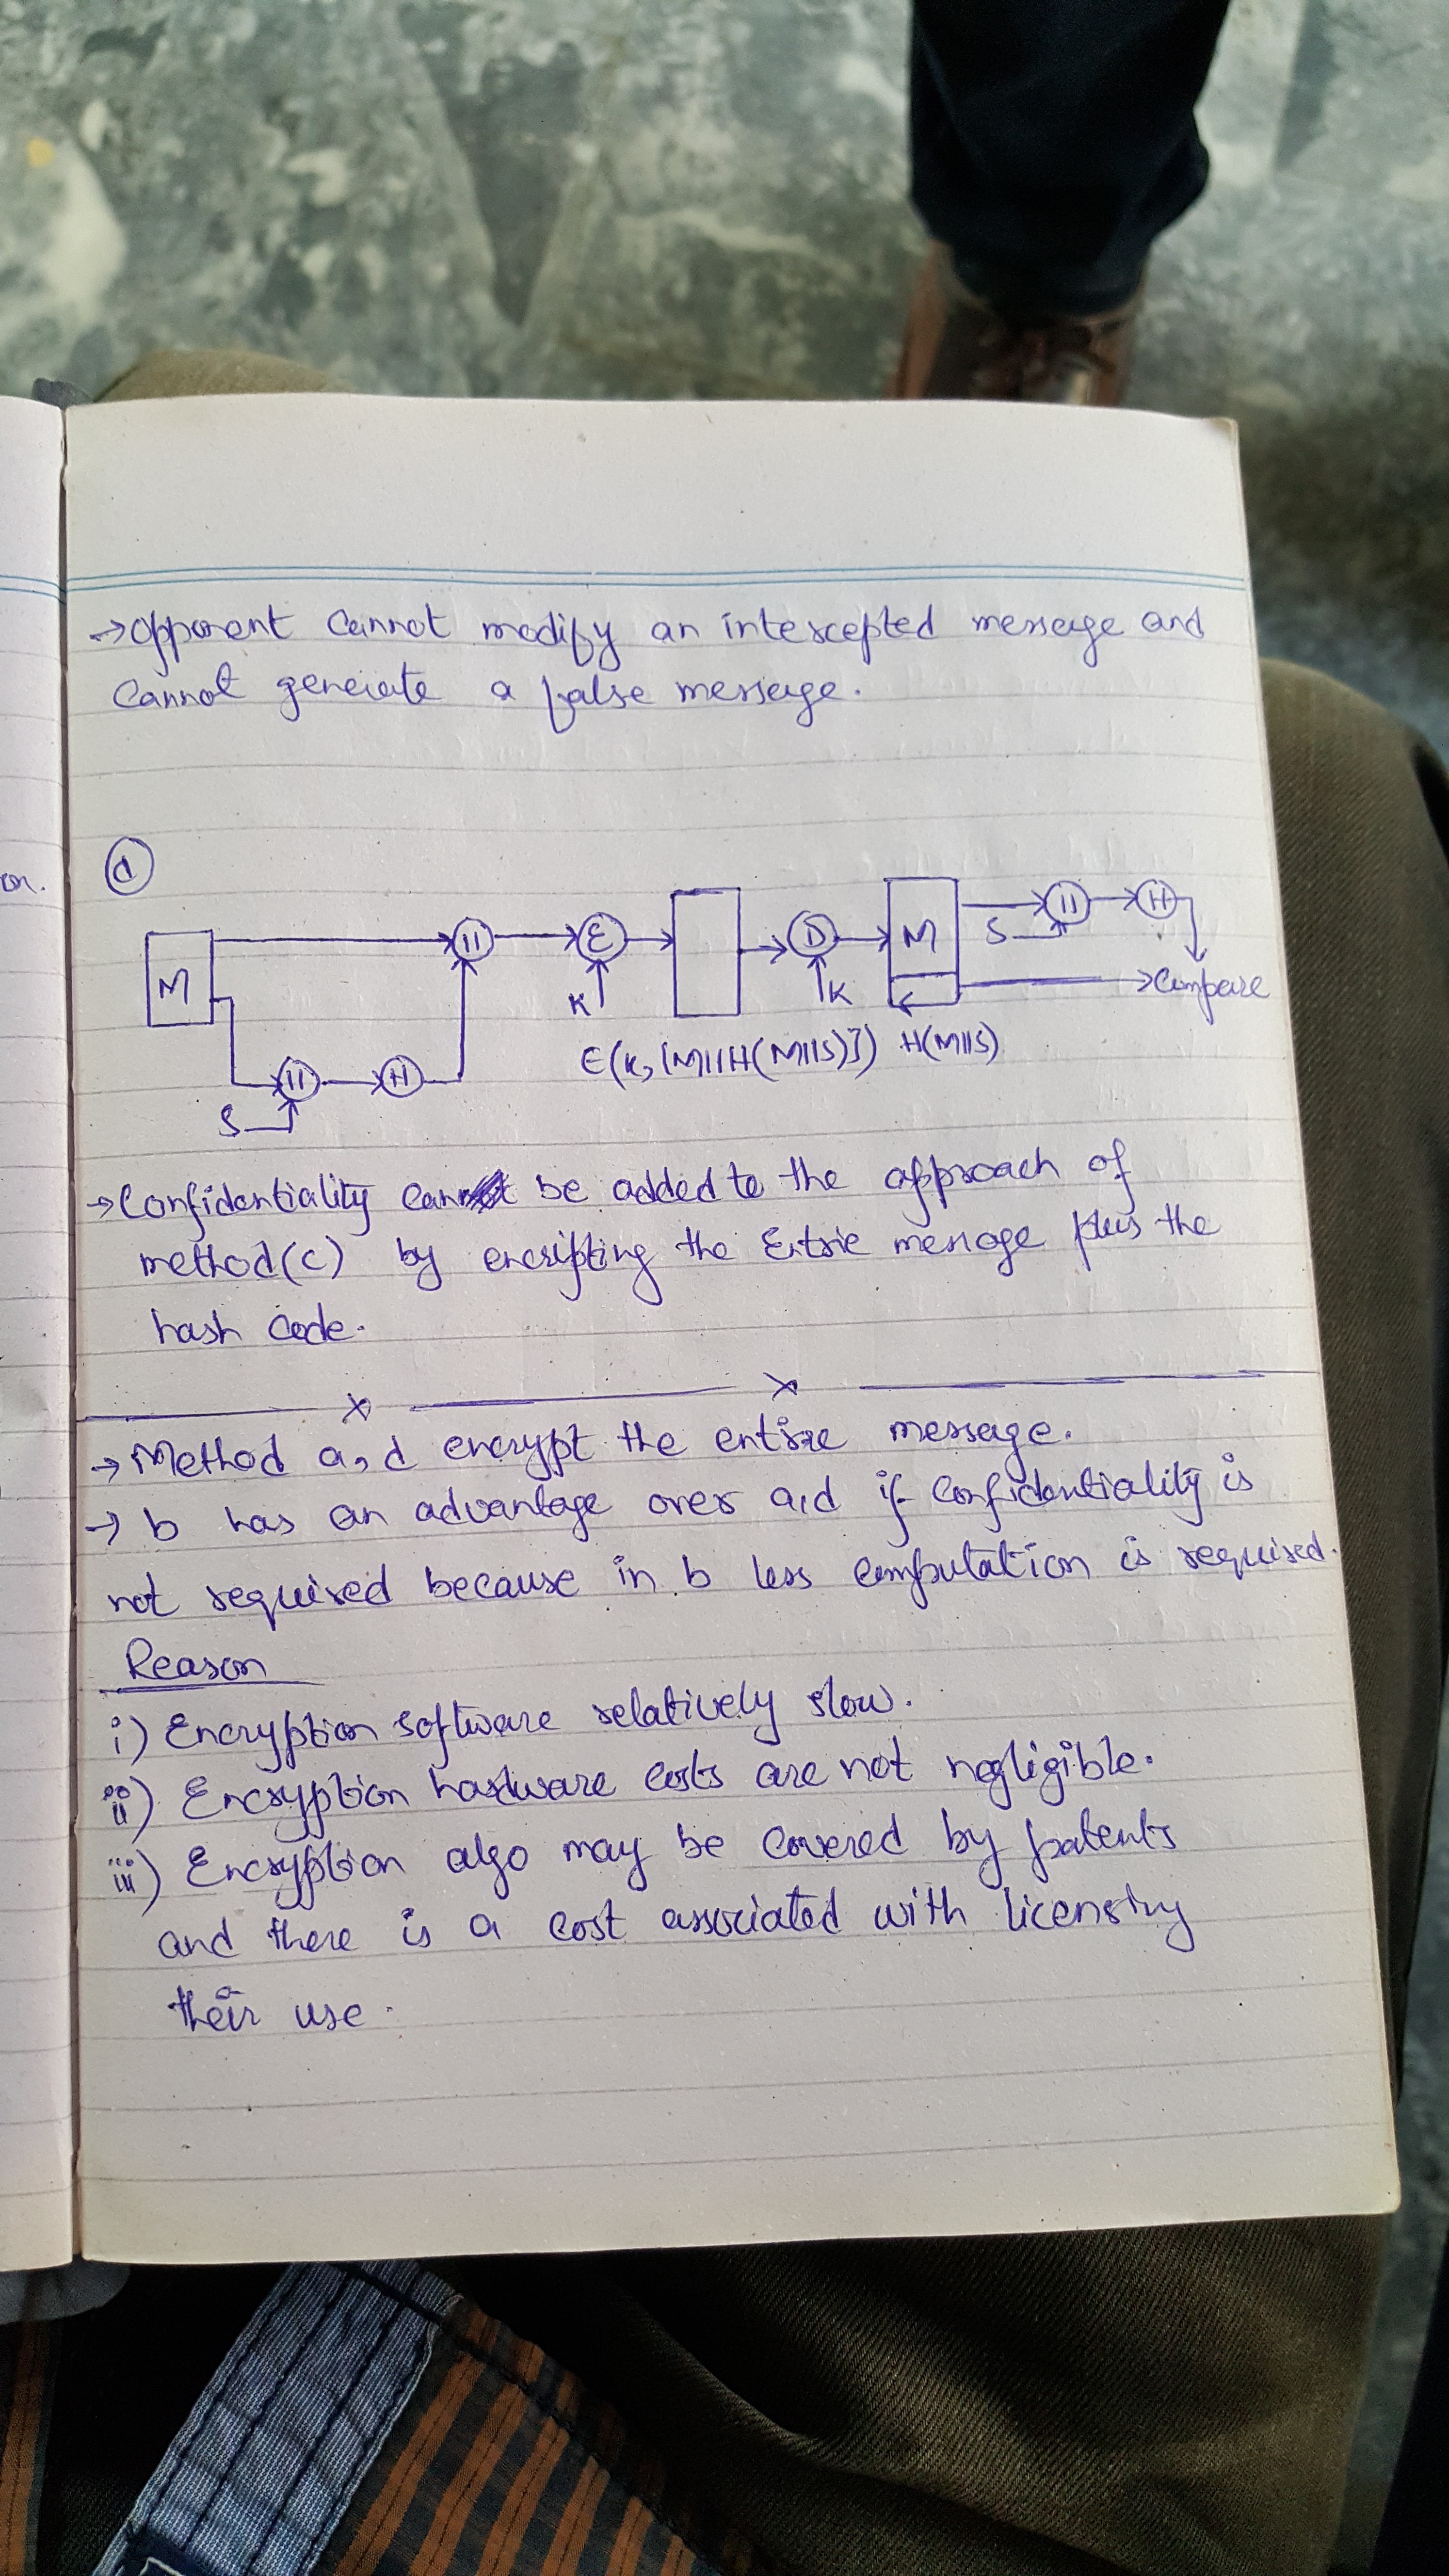 on.
→ Opponent cannot modify an intercepted message and
cannot generate a false message.
d
M || E D M || H
K K S
Compare
E(K, [M||H(M||S)]) H(M||S)
|| H
S
→ Confidentiality can be added to the approach of
method (c) by encripting the Entrie message plus the
hash code.
x x
→ Method a, d encrypt the entire message.
→ b has an advantage over a,d if confidentiality is
not required because in b less computation is required.
Reason
i) Encryption software relatively slow.
ii) Encryption hardware costs are not negligible.
iii) Encryption algo may be covered by patents
and there is a cost associated with licensing
their use.